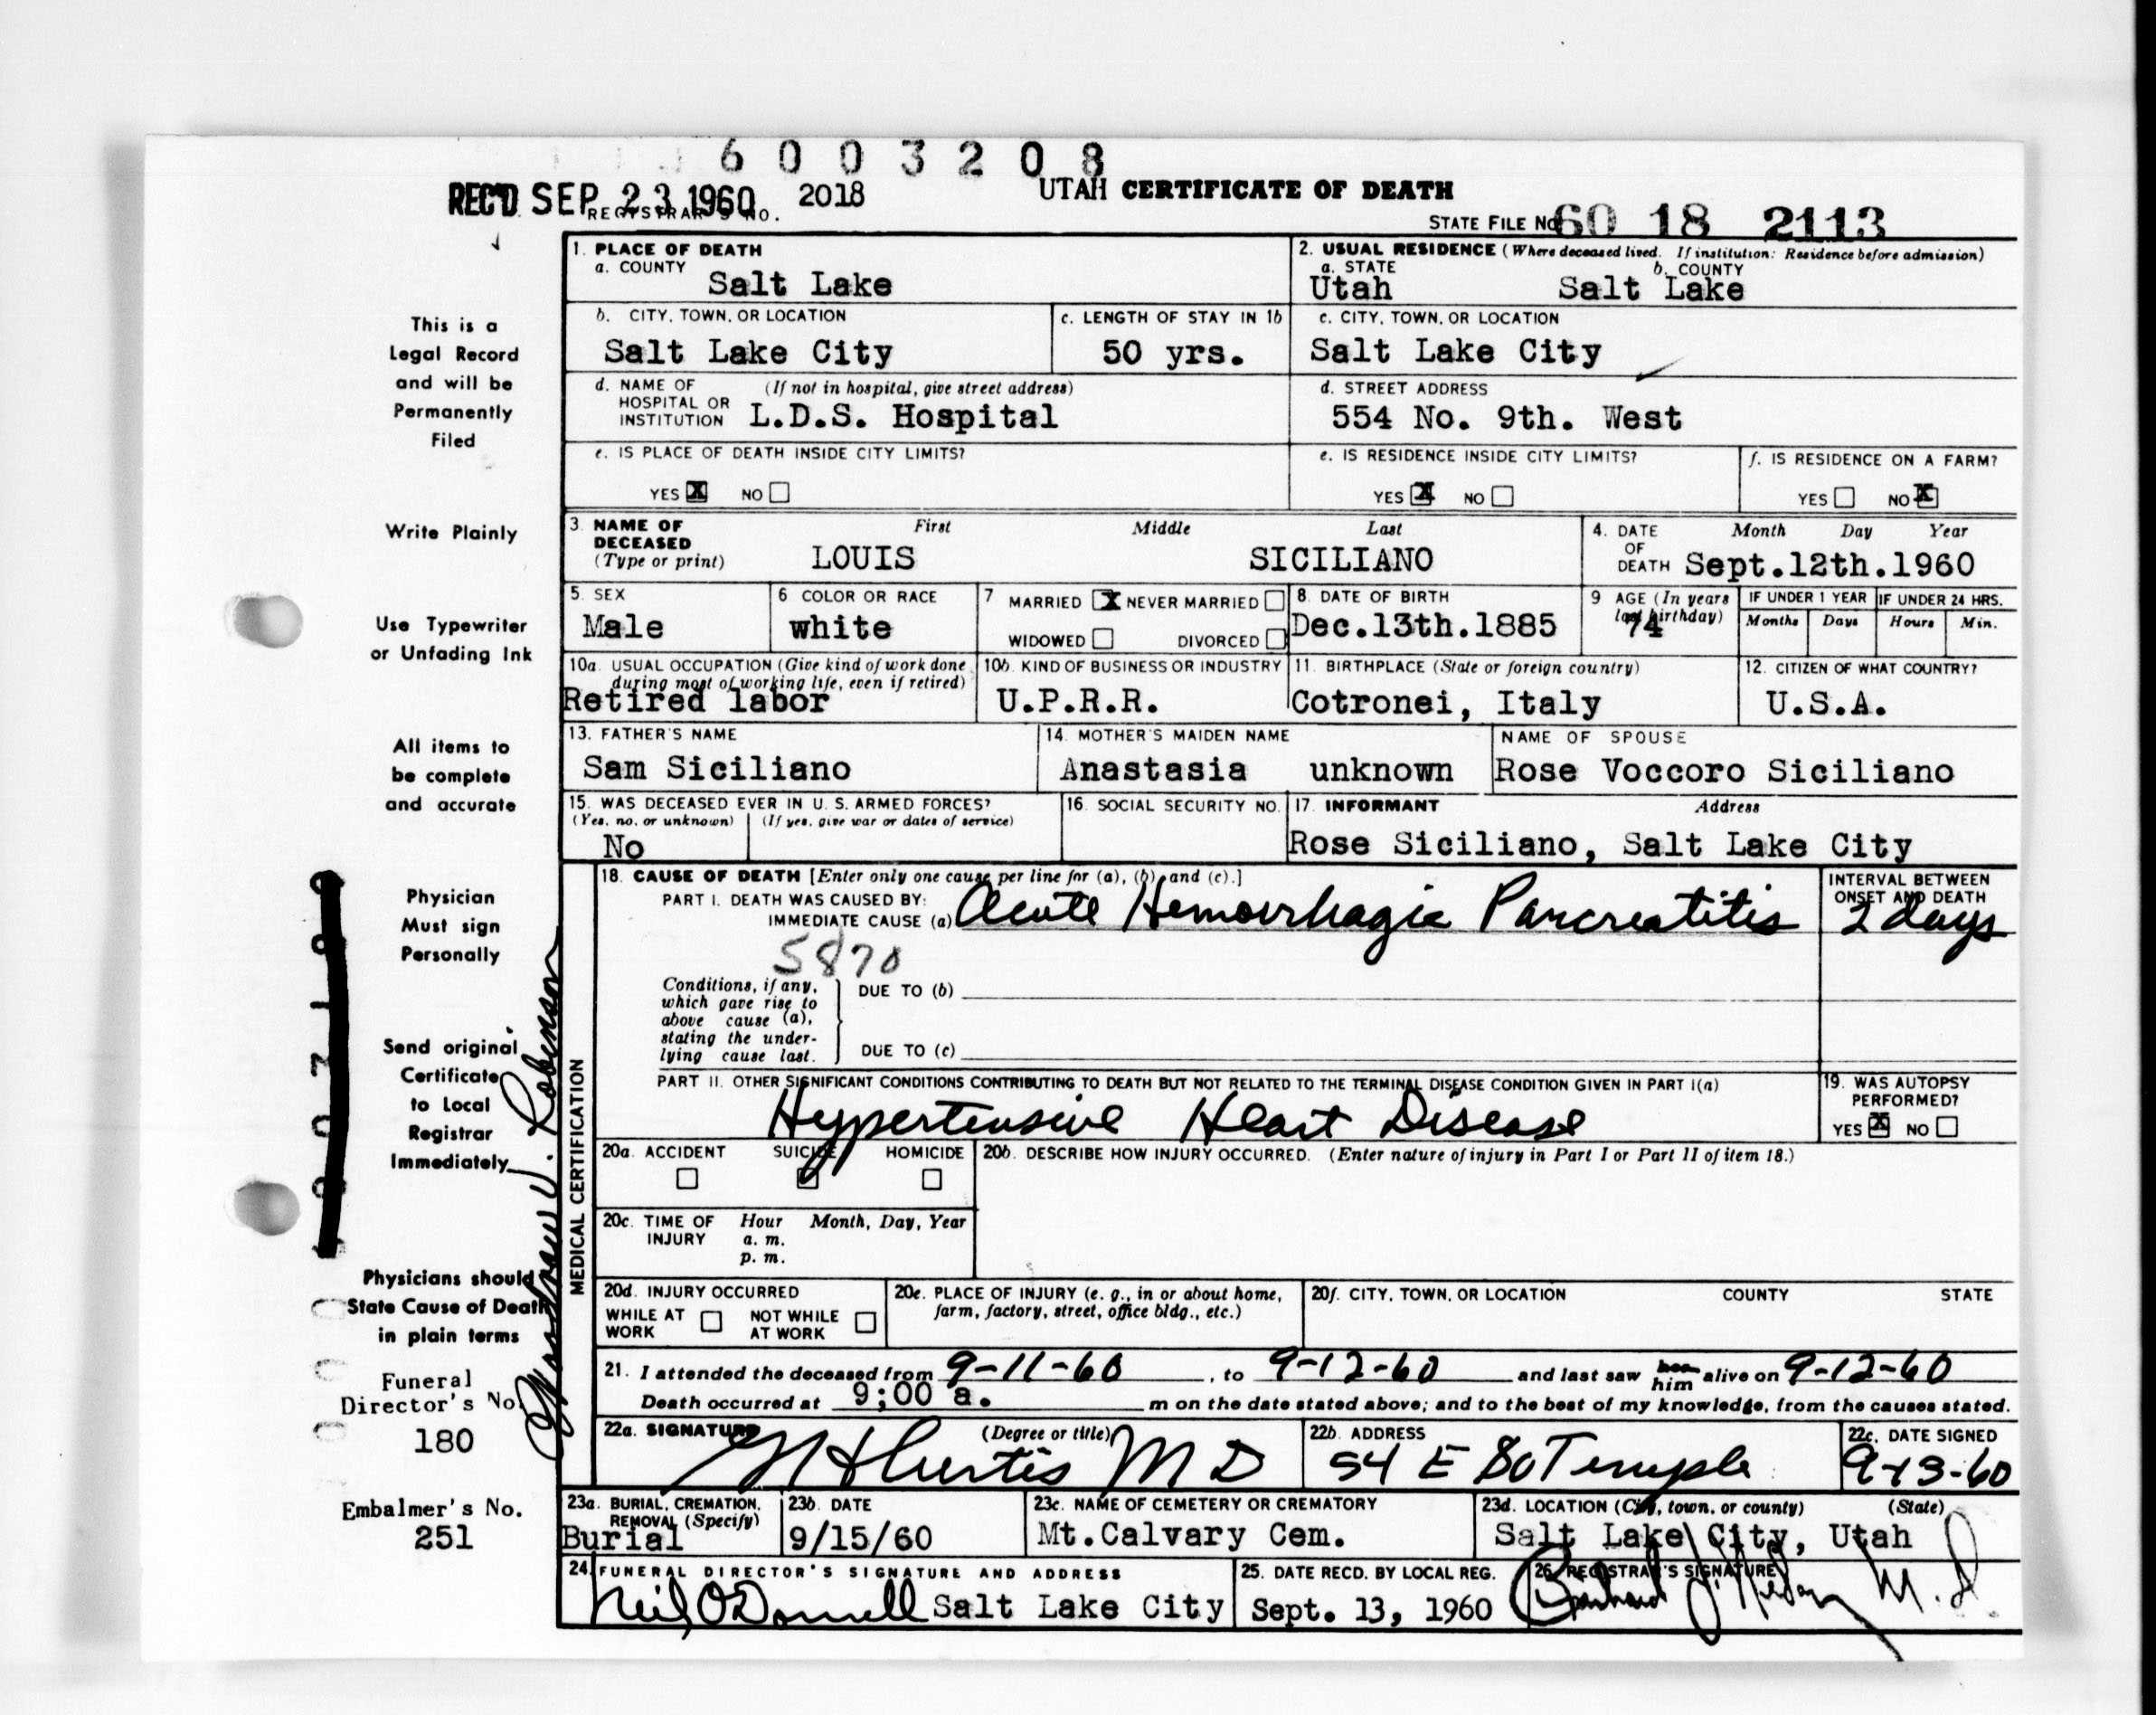 6003208
REC'D SEP 23 1960 REGISTRAR'S NO. 2018
UTAH CERTIFICATE OF DEATH
STATE FILE NO. 60 18 2113
1. PLACE OF DEATH
a. COUNTY
Salt Lake
2. USUAL RESIDENCE (Where deceased lived. If institution: Residence before admission)
a. STATE b. COUNTY
Utah Salt Lake
b. CITY, TOWN, OR LOCATION
Salt Lake City
c. LENGTH OF STAY IN 1b
50 yrs.
c. CITY, TOWN, OR LOCATION
Salt Lake City
d. NAME OF HOSPITAL OR INSTITUTION (If not in hospital, give street address)
L.D.S. Hospital
d. STREET ADDRESS
554 No. 9th. West
e. IS PLACE OF DEATH INSIDE CITY LIMITS?
YES X NO
e. IS RESIDENCE INSIDE CITY LIMITS?
YES X NO
f. IS RESIDENCE ON A FARM?
YES NO X
3. NAME OF DECEASED (Type or print)
First Middle Last
LOUIS SICILIANO
4. DATE OF DEATH
Month Day Year
Sept.12th.1960
5. SEX
Male
6 COLOR OR RACE
white
7 MARRIED X NEVER MARRIED
WIDOWED DIVORCED
8. DATE OF BIRTH
Dec.13th.1885
9 AGE (In years last birthday)
74
IF UNDER 1 YEAR IF UNDER 24 HRS.
Months Days Hours Min.
10a. USUAL OCCUPATION (Give kind of work done during most of working life, even if retired)
Retired labor
10b. KIND OF BUSINESS OR INDUSTRY
U.P.R.R.
11. BIRTHPLACE (State or foreign country)
Cotronei, Italy
12. CITIZEN OF WHAT COUNTRY?
U.S.A.
13. FATHER'S NAME
Sam Siciliano
14. MOTHER'S MAIDEN NAME
Anastasia unknown
NAME OF SPOUSE
Rose Voccoro Siciliano
15. WAS DECEASED EVER IN U. S. ARMED FORCES?
(Yes, no, or unknown) (If yes, give war or dates of service)
No
16. SOCIAL SECURITY NO.
17. INFORMANT Address
Rose Siciliano, Salt Lake City
MEDICAL CERTIFICATION
18. CAUSE OF DEATH [Enter only one cause per line for (a), (b), and (c).]
PART I. DEATH WAS CAUSED BY:
IMMEDIATE CAUSE (a) Acute Hemorrhagic Pancreatitis
INTERVAL BETWEEN ONSET AND DEATH
2 days
5870
Conditions, if any, which gave rise to above cause (a), stating the underlying cause last.
DUE TO (b)
DUE TO (c)
PART II. OTHER SIGNIFICANT CONDITIONS CONTRIBUTING TO DEATH BUT NOT RELATED TO THE TERMINAL DISEASE CONDITION GIVEN IN PART I(a)
Hypertensive Heart Disease
19. WAS AUTOPSY PERFORMED?
YES X NO
20a. ACCIDENT SUICIDE HOMICIDE
20b. DESCRIBE HOW INJURY OCCURRED. (Enter nature of injury in Part I or Part II of item 18.)
20c. TIME OF INJURY Hour Month, Day, Year
a. m.
p. m.
20d. INJURY OCCURRED
WHILE AT WORK NOT WHILE AT WORK
20e. PLACE OF INJURY (e. g., in or about home, farm, factory, street, office bldg., etc.)
20f. CITY, TOWN, OR LOCATION COUNTY STATE
21. I attended the deceased from 9-11-60, to 9-12-60 and last saw her him alive on 9-12-60
Death occurred at 9:00 a. m on the date stated above; and to the best of my knowledge, from the causes stated.
22a. SIGNATURE (Degree or title)
Curtis M D
22b. ADDRESS
54 E So Temple
22c. DATE SIGNED
9-13-60
23a. BURIAL, CREMATION, REMOVAL (Specify)
Burial
23b. DATE
9/15/60
23c. NAME OF CEMETERY OR CREMATORY
Mt.Calvary Cem.
23d. LOCATION (City, town, or county) (State)
Salt Lake City, Utah
24. FUNERAL DIRECTOR'S SIGNATURE AND ADDRESS
Neil O'Donnell Salt Lake City
25. DATE RECD. BY LOCAL REG.
Sept. 13, 1960
26. REGISTRAR'S SIGNATURE
M.D.
This is a
Legal Record
and will be
Permanently
Filed
Write Plainly
Use Typewriter
or Unfading Ink
All items to
be complete
and accurate
Physician
Must sign
Personally
Send original
Certificate
to Local
Registrar
Immediately
Physicians should
State Cause of Death
in plain terms
Funeral
Director's No.
180
Embalmer's No.
251
J. Robinson